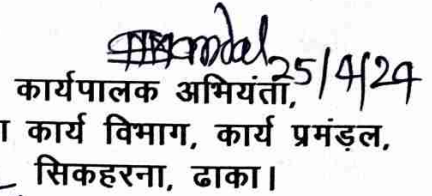 25/4/24
कार्यपालक अभियंता,
कार्य विभाग, कार्य प्रमंडल,
सिकहरना, ढाका।